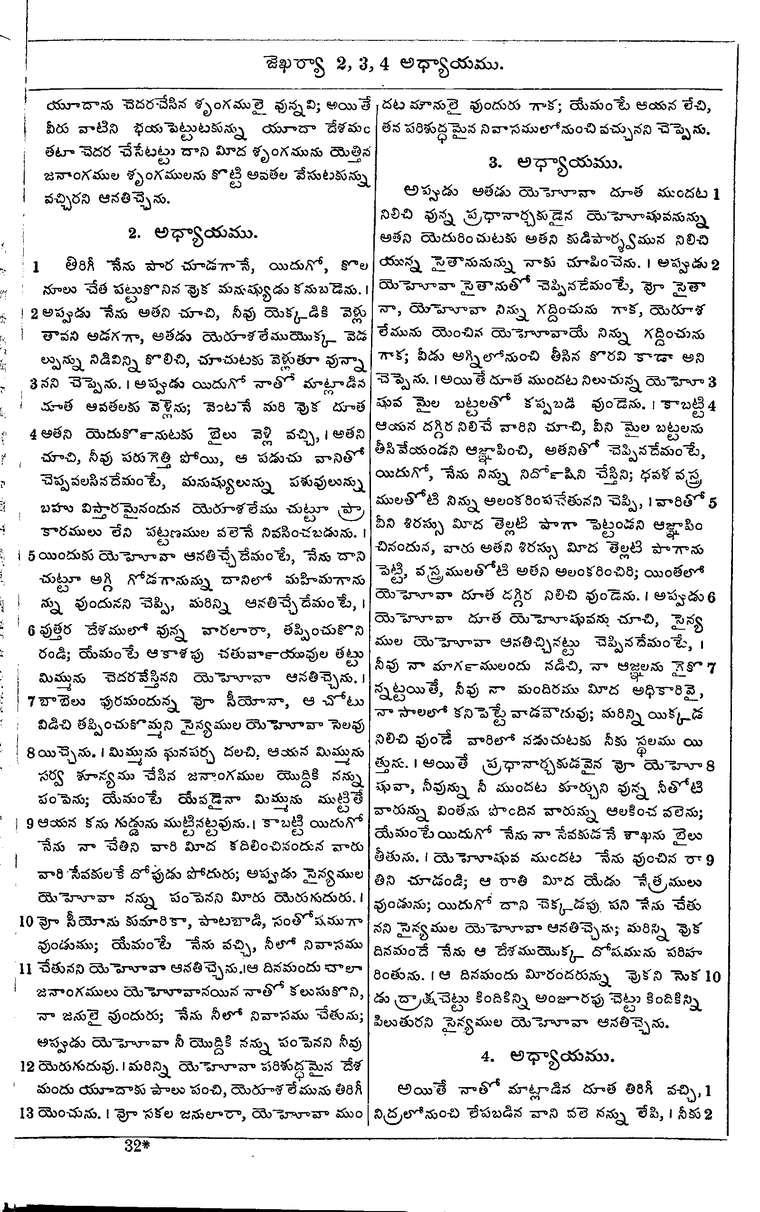 జెఖర్యా 2, 3, 4 అధ్యాయము.
యూదాను చెదరచేసిన శృంగములై వున్నవి; అయితే
వీరు వాటిని భయపెట్టుటకున్ను యూదా దేశమం
తటా చెదర చేసేటట్టు దాని మీద శృంగమును యెత్తిన
జనాంగముల శృంగములను కొట్టి అవతల వేసుటకున్ను
వచ్చిరని ఆనతిచ్చెను.
2. అధ్యాయము.
1 తిరిగీ నేను పార చూడగానే, యిదుగో, కొల
నూలు చేత పట్టుకొనిన వుక మనుష్యుడు కనుబడెను. ।
2 అప్పుడు నేను అతని చూచి, నీవు యెక్కడికి వెళ్లు
తావని అడగగా, అతడు యెరూశలేముయొక్క వెడ
ల్పున్ను నిడివిన్ని కొలిచి, చూచుటకు వెళ్లుతూ వున్నా
3 నని చెప్పెను. । అప్పుడు యిదుగో నాతో మాట్లాడిన
దూత అవతలకు వెళ్లెను; వెంటనే మరి వుక దూత
4 అతని యెదుర్కొనుటకు బైలు వెళ్లి వచ్చి, । అతని
చూచి, నీవు పరుగెత్తి పోయి, ఆ పడుచు వానితో
చెప్పవలసినదేమంటే, మనుష్యులున్ను పశువులున్ను
బహు విస్తారమైనందున యెరూశలేము చుట్టూ ప్రా
కారములు లేని పట్టణముల వలెనే నివసించబడును. ।
5 యిందుకు యెహోవా ఆనతిచ్చేదేమంటే, నేను దాని
చుట్టూ అగ్ని గోడగానున్ను దానిలో మహిమగాను
న్ను వుందునని చెప్పి, మరిన్ని ఆనతిచ్చేదేమంటే, ।
6 వుత్తర దేశములో వున్న వారలారా, తప్పించుకొని
రండి; యేమంటే ఆకాశపు చతుర్వాయువుల తట్టు
మిమ్మును చెదరవేస్తినని యెహోవా ఆనతిచ్చెను. ।
7 బాబెలు పురమందున్న హెూ సీయోనా, ఆ చోటు
విడిచి తప్పించుకొమ్మని సైన్యముల యెహోవా సెలవు
8 యిచ్చెను. । మిమ్మును ఘనపర్చ దలచి, ఆయన మిమ్మును
సర్వ శూన్యము చేసిన జనాంగముల యొద్దికి నన్ను
పంపెను; యేమంటే యేవడైనా మిమ్మును ముట్టితే
9 ఆయన కను గుడ్డును ముట్టినట్టవును. । కాబట్టి యిదుగో
నేను నా చేతిని వారి మీద కదిలించినందున వారు
వారి సేవకులకే దోపుడు పోదురు; అప్పుడు సైన్యముల
యెహోవా నన్ను పంపెనని మీరు యెరుగుదురు. ।
10 హెూ సీయోను కుమారికా, పాటబాడి, సంతోషముగా
వుండుము; యేమంటే నేను వచ్చి, నీలో నివాసము
11 చేతునని యెహోవా ఆనతిచ్చెను. । ఆ దినమందు చాలా
జనాంగములు యెహోవానయిన నాతో కలుసుకొని,
నా జనులై వుందురు; నేను నీలో నివాసము చేతును;
అప్పుడు యెహోవా నీ యొద్దికి నన్ను పంపెనని నీవు
12 యెరుగుదువు. । మరిన్ని యెహోవా పరిశుద్ధమైన దేశ
మందు యూదాకు పాలు పంచి, యెరూశలేమును తిరిగీ
13 యెంచును. । హెూ సకల జనులారా, యెహోవా ముం
దట మౌనులై వుందురు గాక; యేమంటే ఆయన లేచి,
తన పరిశుద్ధమైన నివాసములోనుంచి వచ్చునని చెప్పెను.
3. అధ్యాయము.
అప్పుడు అతడు యెహోవా దూత ముందట 1
నిలిచి వున్న ప్రధానార్చకుడైన యెహోషువనున్ను
అతని యెదురించుటకు అతని కుడిపార్శ్వమున నిలిచి
యున్న సైతానునున్ను నాకు చూపించెను. । అప్పుడు 2
యెహోవా సైతానుతో చెప్పినదేమంటే, హెూ సైతా
నా, యెహోవా నిన్ను గద్దించును గాక, యెరూశ
లేమును యెంచిన యెహోవాయే నిన్ను గద్దించును
గాక; వీడు అగ్నిలోనుంచి తీసిన కొరవి కాడా అని
చెప్పెను. । అయితే దూత ముందట నిలుచున్న యెహో 3
షువ మైల బట్టలతో కప్పబడి వుండెను. । కాబట్టి 4
ఆయన దగ్గిర నిలిచే వారిని చూచి, వీని మైల బట్టలను
తీసివేయండని ఆజ్ఞాపించి, అతనితో చెప్పినదేమంటే,
యిదుగో, నేను నిన్ను నిర్దోషిని చేస్తిని; ధవళ వస్త్ర
ములతోటి నిన్ను అలంకరింపచేతునని చెప్పి, । వారితో 5
వీని శిరస్సు మీద తెల్లటి పాగా పెట్టండని ఆజ్ఞాపిం
చినందున, వారు అతని శిరస్సు మీద తెల్లటి పాగాను
పెట్టి, వస్త్రములతోటి అతని అలంకరించిరి; యింతలో
యెహోవా దూత దగ్గిర నిలిచి వుండెను. । అప్పుడు 6
యెహోవా దూత యెహోషువను చూచి, సైన్య
ముల యెహోవా ఆనతిచ్చినట్టు చెప్పినదేమంటే, ।
నీవు నా మార్గములందు నడిచి, నా ఆజ్ఞలను గైకొ 7
న్నట్టయితే, నీవు నా మందిరము మీద అధికారివై,
నా సాలలో కనిపెట్టే వాడవౌదువు; మరిన్ని యిక్కడ
నిలిచి వుండే వారిలో నడుచుటకు నీకు స్థలము యి
త్తును. । అయితే ప్రధానార్చకుడవైన హెూ యెహో 8
షువా, నీవున్ను నీ ముందట కూర్చుని వున్న నీతోటి
వారున్ను వింతను పొందిన వారున్ను ఆలకించ వలెను;
యేమంటే యిదుగో నేను నా సేవకుడనే శాఖను బైలు
తీతును. । యెహోషువ ముందట నేను వుంచిన రా 9
తిని చూడండి; ఆ రాతి మీద యేడు నేత్రములు
వుండును; యిదుగో దాని చెక్కడపు పని నేను చేతు
నని సైన్యముల యెహోవా ఆనతిచ్చెను; మరిన్ని వుక
దినమందే నేను ఆ దేశముయొక్క దోషమును పరిహ
రింతును. । ఆ దినమందు మీరందరున్ను వుకని నొక 10
డు ద్రాక్షచెట్టు కిందికిన్ని అంజూరపు చెట్టు కిందికిన్ని
పిలుతురని సైన్యముల యెహోవా ఆనతిచ్చెను.
4. అధ్యాయము.
అయితే నాతో మాట్లాడిన దూత తిరిగీ వచ్చి, 1
నిద్రలోనుంచి లేపబడిన వాని వలె నన్ను లేపి, । నీకు 2
32*